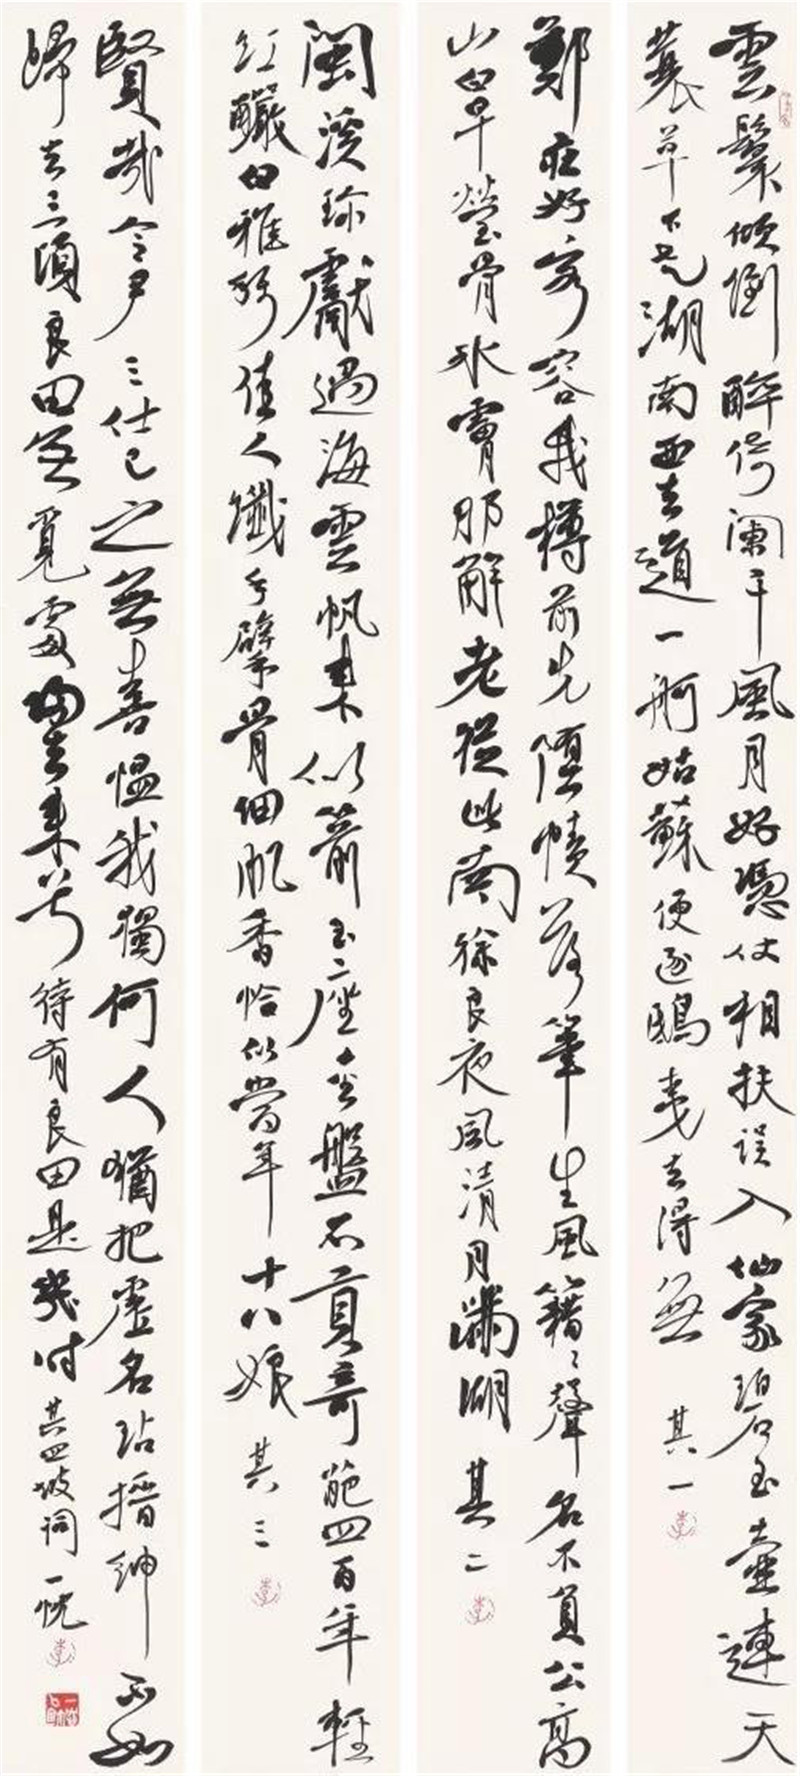 雲鬢傾倒醉倚闌干風月好憑仗相扶誤入仙家碧玉壺連天
蓑草下走湖南西去道一舸姑蘇便逐鴟夷去得無 其一
鄭莊好客容我樽前先墮幘落筆生風籍〻聲名不負公高
山白早瑩骨冰膚那解老從此南徐良夜風清月滿湖 其二
閩溪珍獻過海雲帆來似箭玉座金盤不貢奇葩四百年輕
紅釅白雅稱佳人纖手擘骨細肌香恰似當年十八娘 其三
賢哉令尹三仕已之無喜慍我獨何人猶把虛名玷搢紳不如
歸去二頃良田無覓處歸去來兮待有良田是幾時 其四坡詞一忱